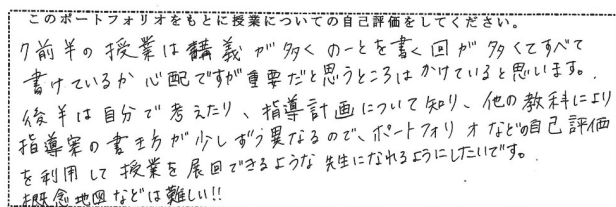 このポートフォリオをもとに授業についての自己評価をしてください。
前半の授業は講義が多くのーとを書く回が多くてすべて
書けているか心配ですが重要だと思うところはかけていると思います。
後半は自分で考えたり、指導計画について知り、他の教科により
指導案の書き方が少しずう異なるので、ポートフォリオなどの自己評価
を利用して授業を展回できるような先生になれるようにしたいです。
概念地図などは難しい!!